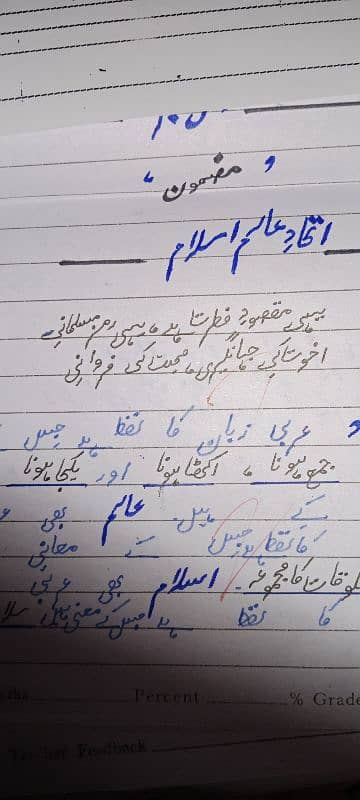 " مضمون "
اتحادِ عالم اسلام
یہی مقصودِ فطرت ہے یہی رمزِ مسلمانی
اخوت کی جہانگیری، محبت کی فروانی
عربی زبان کا لفظ ہے جس
جمع ہونا، اکٹھا ہونا اور یکجا ہونا
کے ہیں۔ عالم بھی
کا لفظ ہے جس کے معانی
کا مجموعہ۔ اسلام بھی عربی
کا لفظ ہے جس کے معنی ہیں
Percent % Grade
Feedback